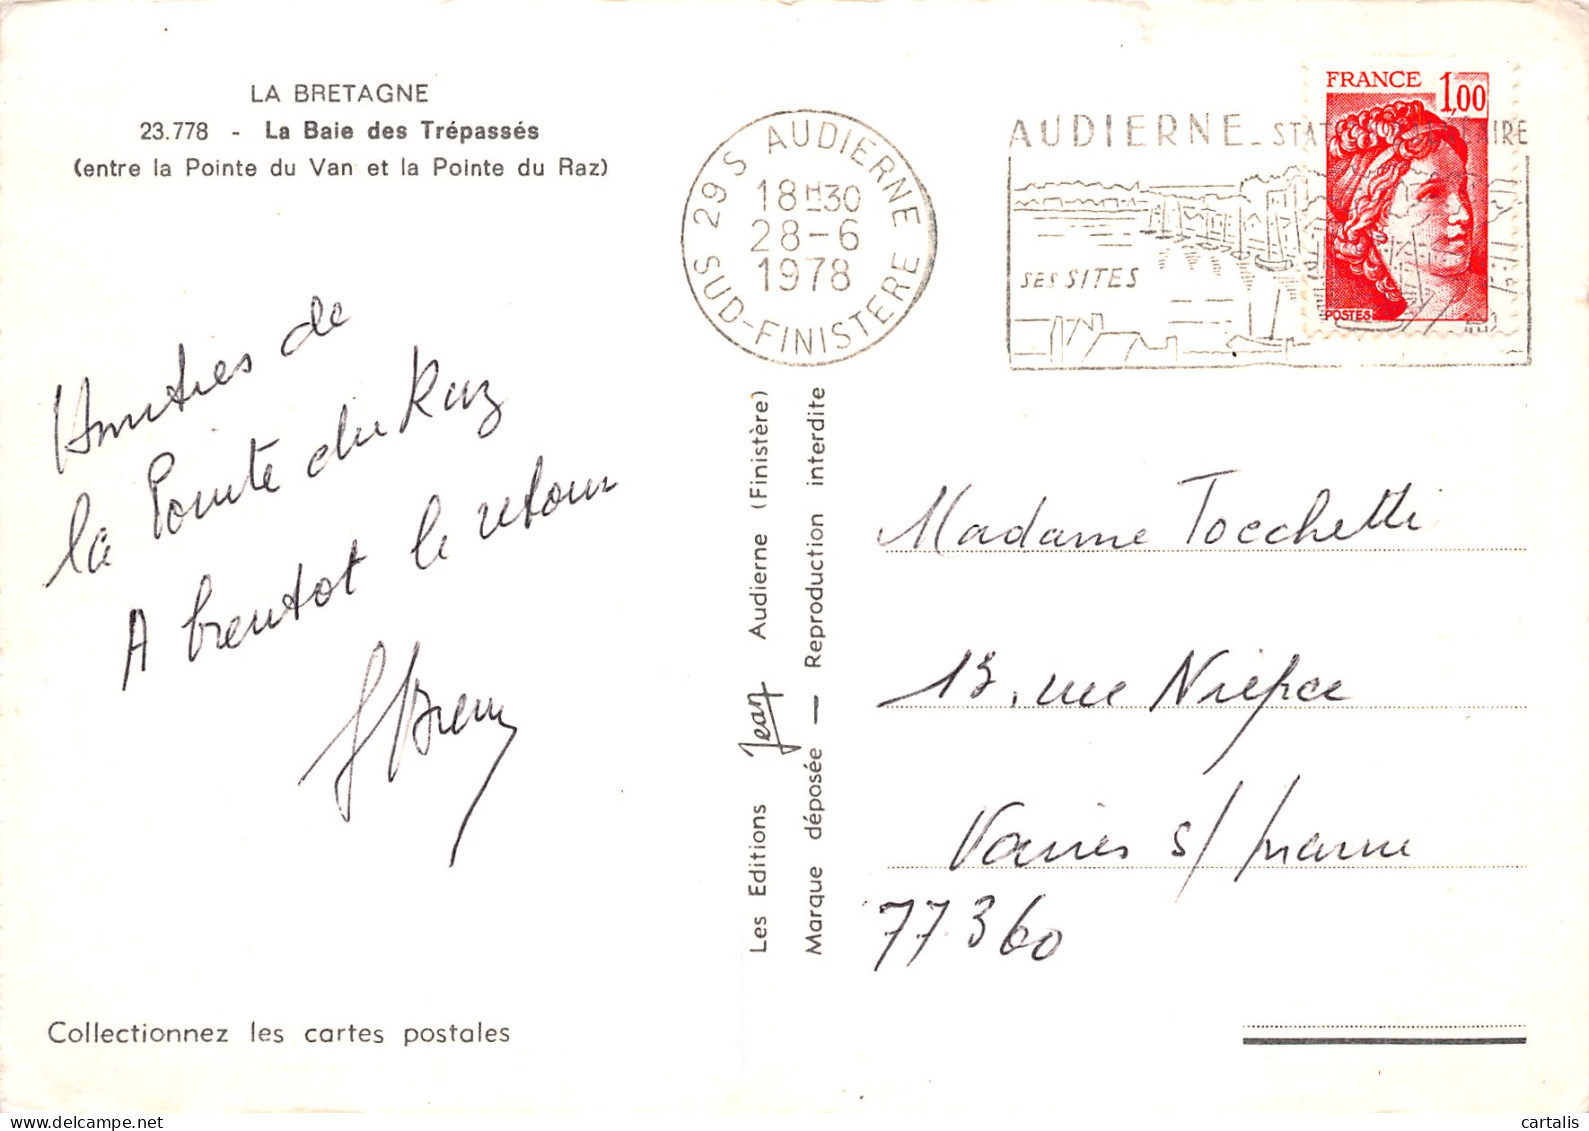 LA BRETAGNE
23.778 - La Baie des Trépassés
(entre la Pointe du Van et la Pointe du Raz)
Amitiés de
la Pointe du Raz
A bientot le retour
Collectionnez les cartes postales
Les Editions Jean Audierne (Finistère)
Marque déposée — Reproduction interdite
29 S AUDIERNE
18H30
28-6
1978
SUD-FINISTERE
AUDIERNE_STAT
IRE
SES SITES
FRANCE 1,00
POSTES
Madame Tocchetti
13, rue Niepce
Vaires s/ marne
77360
delcampe.net
cartalis